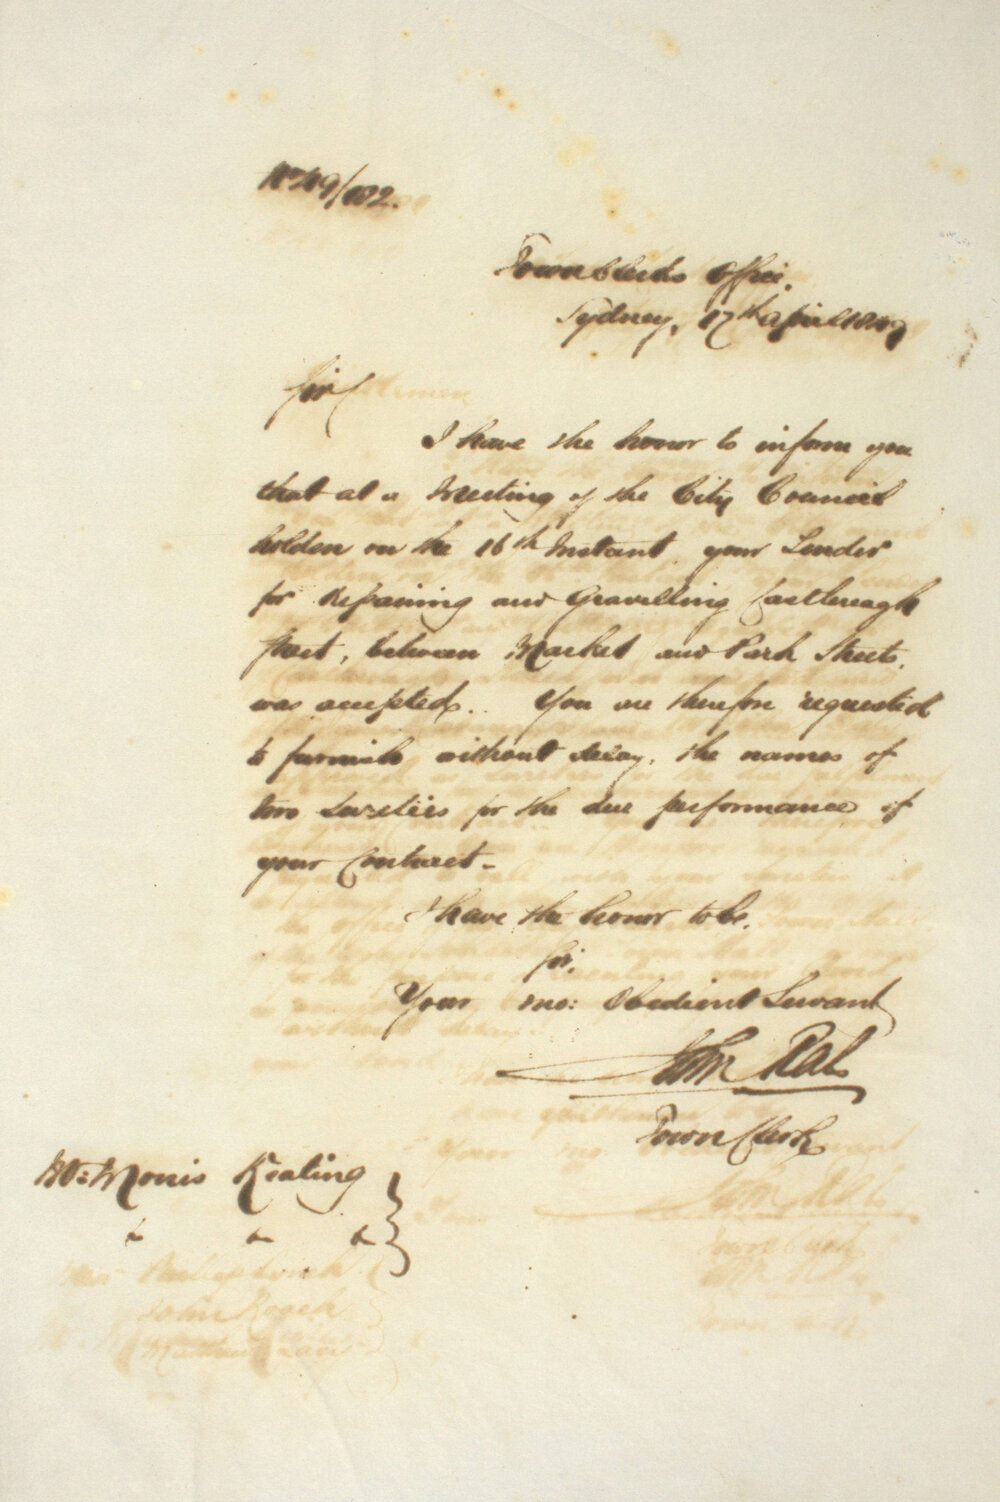 No 49/182.
Town Clerks Office.
Sydney, 17th April 1849
Sir
I have the honor to inform you
that at a Meeting of the City Council
holden on the 16th Instant, your Tender
for Repairing and Gravelling Castlereagh
Street, between Market and Park Streets,
was accepted. You are therefore requested
to furnish without delay, the names of
two Sureties for the due performance of
your Contract -
I have the honor to be,
Sir,
Your mo: Obedient Servant
John Rae
Town Clerk
Morris Keating
" " "